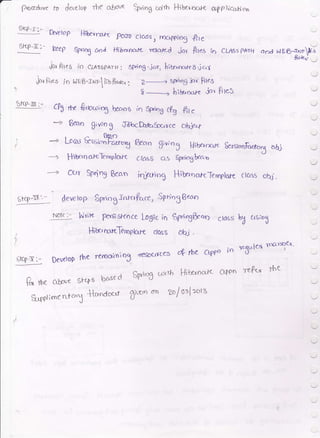 Procedure to develop the above Spring with Hibernate application
Step-I:- Develop Hibernate pojo class, mapping file
Step-II:- keep Spring and Hibernate related jar files in CLASSPATH and WEB-INF\lib folder
Jar files in CLASSPATH: spring.jar, hibernate3.jar
Jar files in WEB-INF\lib folder: 2 → spring jar files
8 → hibernate jar files
Step-III:- Cfg the following beans in Spring Cfg file
→ Bean giving JdbcDataSource object
→ LocalSessionFactory Bean giving Hibernate SessionFactory obj
→ HibernateTemplate class as Spring bean
→ Our Spring Bean injecting HibernateTemplate class obj.
Step-IV:- develop Spring Interface, Spring Bean
Note:- Write persistence Logic in SpringBean class by using
HibernateTemplate class obj.
Step-V:- Develop the remaining resources of the appn in regular manner.
For the above steps based Spring with Hibernate appn refer the
Supplimentary Handout given on 20/03/2013